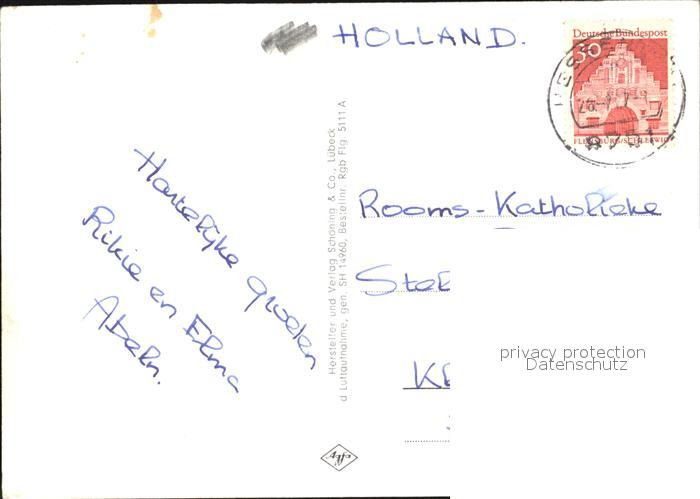 HOLLAND.
Deutsche Bundespost
30
FLENSBURG/SCHLESWIG
Hartelijke groeten
Rikie en Elma
Abeln.
Hersteller und Verlag Schöning & Co., Lübeck
d Luftaufnahme, gen. SH 14960, Bestellnr. Rgb Flg 5111 A
Rooms-Katholieke
privacy protection
Datenschutz